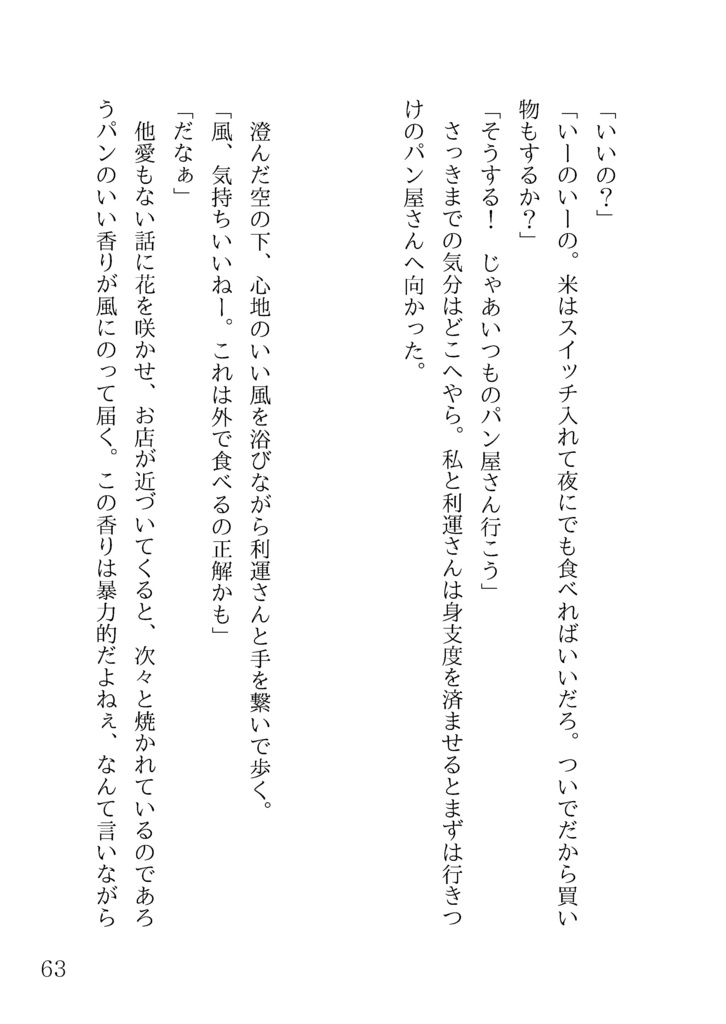 「いいの?」
「いーのいーの。米はスイッチ入れて夜にでも食べればいいだろ。ついでだから買い
物もするか?」
「そうする! じゃあいつものパン屋さん行こう」
　さっきまでの気分はどこへやら。私と利運さんは身支度を済ませるとまずは行きつ
けのパン屋さんへ向かった。
　澄んだ空の下、心地のいい風を浴びながら利運さんと手を繋いで歩く。
「風、気持ちいいねー。これは外で食べるの正解かも」
「だなぁ」
　他愛もない話に花を咲かせ、お店が近づいてくると、次々と焼かれているのであろ
うパンのいい香りが風にのって届く。この香りは暴力的だよねぇ、なんて言いながら
63